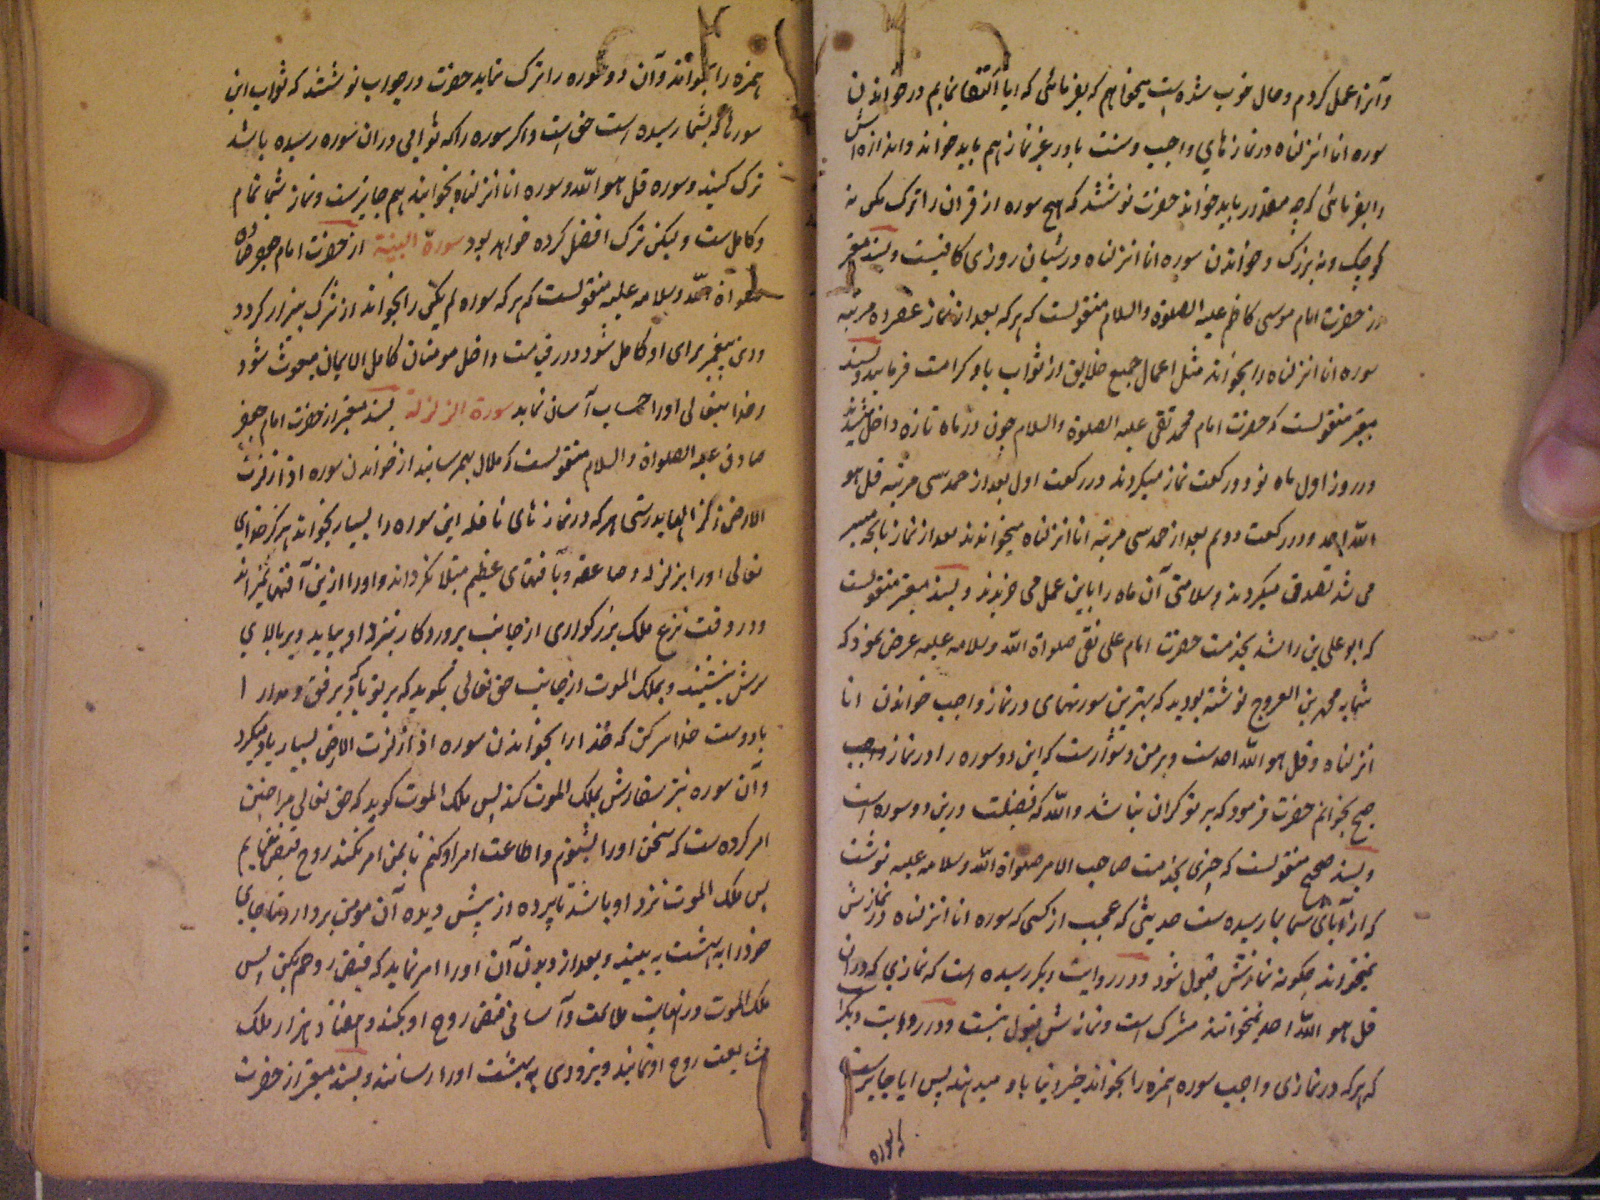 و آنرا عمل کردم و حال خوب شده است میخواهم که بفرمائی که ایا اکتفا نمایم در خواندن
سوره انا انزلناه در نماز های واجب و سنت یا در غیر نماز هم باید خواند و اندازه اش
را بفرمائی که چه مقدار باید خواند حضرت نوشتند که هیچ سوره از قران را ترک مکن نه
کوچک و نه بزرک و خواندن سوره انا انزلناه در شبان روزی کافیست و بسند معتبر
از حضرت امام موسی کاظم علیه الصلوة والسلام منقولست که هر که بعد از نماز عصر ده مرتبه
سوره انا انزلناه را بخواند مثل اعمال جمیع خلایق از ثواب باو کرامت فرمایند و بسند
معتبر منقولست که حضرت امام محمد تقی علیه الصلوة والسلام چون در ماه تازه داخل میشدند
در روز اول ماه نو دو رکعت نماز میکردند در رکعت اول بعد از حمد سی مرتبه قل هو
الله احد و در رکعت دوم بعد از حمد سی مرتبه انا انزلناه میخواندند بعد از نماز بانچه میسر
می شد تصدق میکردند و سلامتی آن ماه را باین عمل می خریدند و بسند معتبر منقولست
که ابو علی بن راشد بخدمت حضرت امام علی نقی صلواة الله وسلامه علیه عرض نمود که
شما به محمد بن الفرج نوشته بودید که بهترین سورتهای در نماز واجب خواندن انا
انزلناه و قل هو الله احد ست و بر من دشوارست که این دو سوره را در نماز واجب
صبح بخوانم حضرت فرمود که بر تو کران نباشد والله که فضیلت درین دو سوره است
و بسند صحیح منقولست که چیزی بخدمت صاحب الامر صلواة الله وسلامه علیه نوشت
که از آبای شما بما رسیده ست حدیثی که عجب از کسی که سوره انا انزلناه در نمازش
نمیخواند چکونه نمازش قبول شود و در روایت دیکر رسیده است که نمازی که در آن
قل هو الله احد نمیخوانند مشرک است و نمازش قبول نیست و در روایت دیکر
که هر که در نمازی واجب سوره همزه را بخواند خیر دنیا باو میدهند پس ایا جایز ست
که سوره
همزه را بخواند و آن دو سوره را ترک نماید حضرت در جواب نوشتند که ثواب این
سورها که بشما رسیده است حق است و اکر سوره را که ثوابی در ان سوره رسیده باشد
ترک کنید و سوره قل هو الله و سوره انا انزلناه بخوانید هم جایز ست و نماز شما تمام
و کامل ست و لیکن ترک افضل کرده خواهد بود سورة البینة از حضرت امام جعفر صادق
صلواة الله وسلامه علیه منقولست که هر که سوره لم یکن را بخواند از شرک بیزار کردد
و دین پیغمبر برای او کامل شود و در قیامت داخل مومنان کامل الایمان مبعوث شود
و خدایتعالی او را حساب آسان نماید سورة الزلزلة بسند معتبر از حضرت امام جعفر
صادق علیه الصلواة والسلام منقولست که ملال بهم مرسانید از خواندن سوره اذا زلزلت
الارض زلزالها بدرستی هر که در نماز های نافله این سوره را بسیار بخواند هرکز خدای
تعالی او را بزلزله و صاعقه و بآفتهای عظیم مبتلا نکرداند و او را ازین آفتها نمیراند
و در وقت نزع ملک بزرکواری از جانب پروردکار نزد او بیاید و بر بالای
سرش بنشیند و بملک الموت از جانب حق تعالی بکوید که بر تو باد برفق و مدارا
با دوست خدا سر کن که خدا را بخواندن سوره اذا زلزلت الارض بسیار یاد میکرد
و آن سوره نیز سفارش بملک الموت کند پس ملک الموت کوید که حق تعالی مرا چنین
امر کرده ست که سخن او را بشنوم و اطاعت امر او کنم تا بمن امر نکند روح قبض ننمایم
پس ملک الموت نزد او باشد تا پرده از پیش دیده آن مومن بردارد تا جای
خود را به بهشت به بیند و بعد از دیدن آن او را امر نماید که قبض روحم بکن پس
ملک الموت در نهایت ملایمت و آسانی قبض روح او بکند و هفتاد هزار ملک
مشایعت روح او نمایند و بزودی به بهشت او را رسانند و بسند معتبر از حضرت